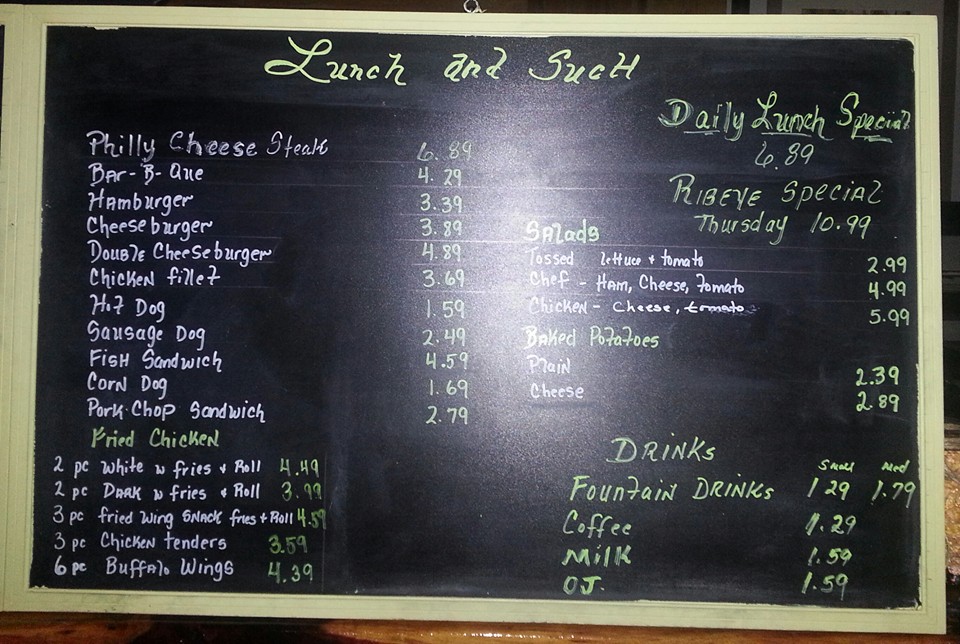 Lunch and Such
Philly Cheese Steak 6.89
Bar-B-Que 4.29
Hamburger 3.39
Cheeseburger 3.89
Double Cheeseburger 4.89
Chicken fillet 3.69
Hot Dog 1.59
Sausage Dog 2.49
Fish Sandwich 4.59
Corn Dog 1.69
Pork Chop Sandwich 2.79
Fried Chicken
2 pc White w fries + Roll 4.49
2 pc Dark w fries + Roll 3.99
3 pc fried wing Snack fries + Roll 4.59
3 pc Chicken tenders 3.59
6 pc Buffalo Wings 4.39
Daily Lunch Special
6.89
Ribeye Special
Thursday 10.99
Salads
Tossed lettuce + tomato 2.99
Chef - Ham, Cheese, Tomato 4.99
Chicken - Cheese, tomato 5.99
Baked Potatoes
Plain 2.39
Cheese 2.89
Drinks
Small Med
Fountain Drinks 1.29 1.79
Coffee 1.29
Milk 1.59
O.J. 1.59